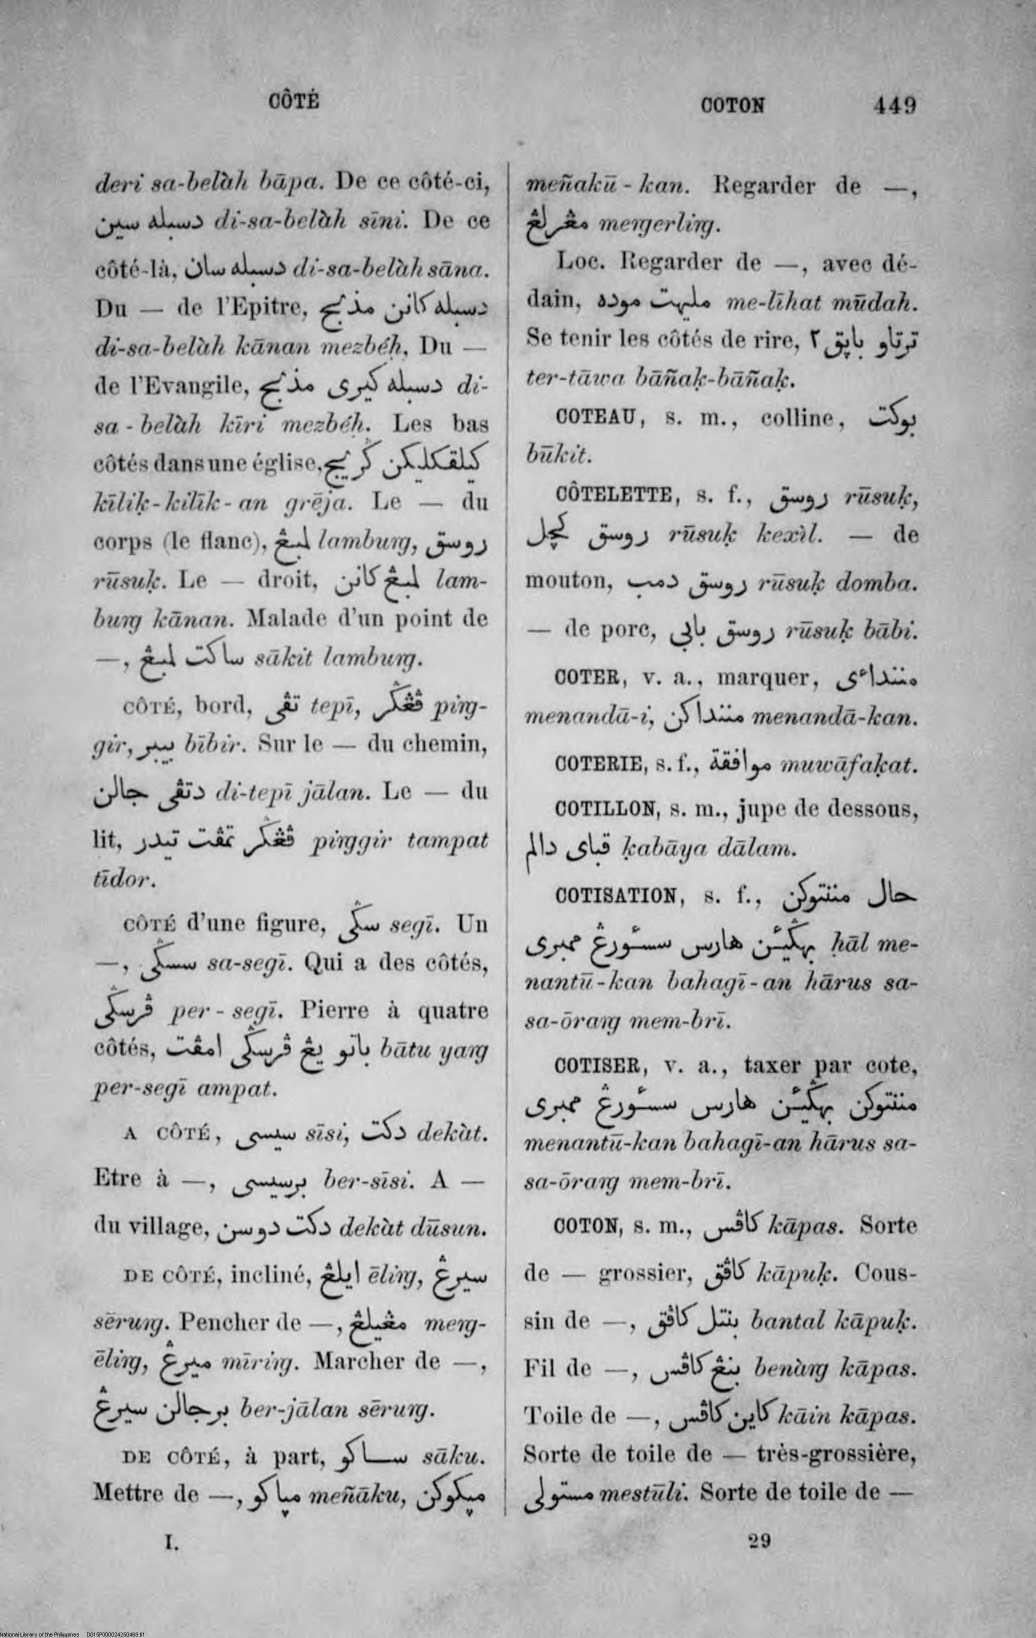 CÔTÉ
COTON 449
deri sa-belàh bāpa. De ce côté-ci,
دسبله سين di-sa-belàh sīni. De ce
côté-là, دسبله سان di-sa-belàh sāna.
Du — de l'Epitre, دسبله كانن مذبح
di-sa-belàh kānan mezbéḥ. Du —
de l'Evangile, دسبله كيرى مذبح di-
sa-belàh kīri mezbéḥ. Les bas
côtés dans une église, كيلقكليكن ڬريج
kīliḳ-kilīk-an grēja. Le — du
corps (le flanc), لمبڠ lamburg, روسق
rūsuḳ. Le — droit, لمبڠ كانن lam-
burg kānan. Malade d'un point de
—, ساكت لمبڠ sākit lamburg.
CÔTÉ, bord, تڤى tepī, ڤڠڬر pirg-
gir, بيبر bībir. Sur le — du chemin,
دتڤى جالن di-tepī jālan. Le — du
lit, ڤڠڬر تمڤت تيدر pirggir tampat
tīdor.
CÔTÉ d'une figure, سڬى segī. Un
—, سسڬى sa-segī. Qui a des côtés,
ڤرسڬى per-segī. Pierre à quatre
côtés, باتو يڠ ڤرسڬى امڤت bātu yarg
per-segī ampat.
A CÔTÉ, سيسى sīsi, دكت dekàt.
Etre à —, برسيسى ber-sīsi. A —
du village, دكت دوسن dekàt dūsun.
DE CÔTÉ, incliné, ايلڠ ēlirg, سيرڠ
sērurg. Pencher de —, مڠيلڠ merg-
ēlirg, ميرڠ mīrirg. Marcher de —,
برجالن سيرڠ ber-jālan sērurg.
DE CÔTÉ, à part, ساكو sāku.
Mettre de —, مڽاكو meñāku, مڽكوكن
I.
meñakū-kan. Regarder de —,
مڠرلڠ mergerlirg.
Loc. Regarder de —, avec dé-
dain, مليهت موده me-līhat mūdah.
Se tenir les côtés de rire, ترتاو باڽق٢
ter-tāwa bāñaḳ-bāñaḳ.
COTEAU, s. m., colline, بوكت
būkit.
CÔTELETTE, s. f., روسق rūsuḳ,
روسق كچل rūsuḳ kexìl. — de
mouton, روسق دمب rūsuḳ domba.
— de porc, روسق بابى rūsuḳ bābi.
COTER, v. a., marquer, مننداءى
menandā-i, مننداكن menandā-kan.
COTERIE, s. f., موافقة muwāfaḳat.
COTILLON, s. m., jupe de dessous,
قباى دالم ḳabāya dālam.
COTISATION, s. f., حال مننتوكن
بهڬيئن هارس سسئورڠ ممبرى ḥāl me-
nantū-kan bahagī-an hārus sa-
sa-ōrarg mem-brī.
COTISER, v. a., taxer par cote,
مننتوكن بهڬيئن هارس سسئورڠ ممبرى
menantū-kan bahagī-an hārus sa-
sa-ōrarg mem-brī.
COTON, s. m., كاڤس kāpas. Sorte
de — grossier, كاڤق kāpuḳ. Cous-
sin de —, بنتل كاڤق bantal kāpuḳ.
Fil de —, بنڠ كاڤس benàrg kāpas.
Toile de —, كاين كاڤس kāin kāpas.
Sorte de toile de — très-grossière,
مستولى mestūli. Sorte de toile de —
29
National Library of the Philippines